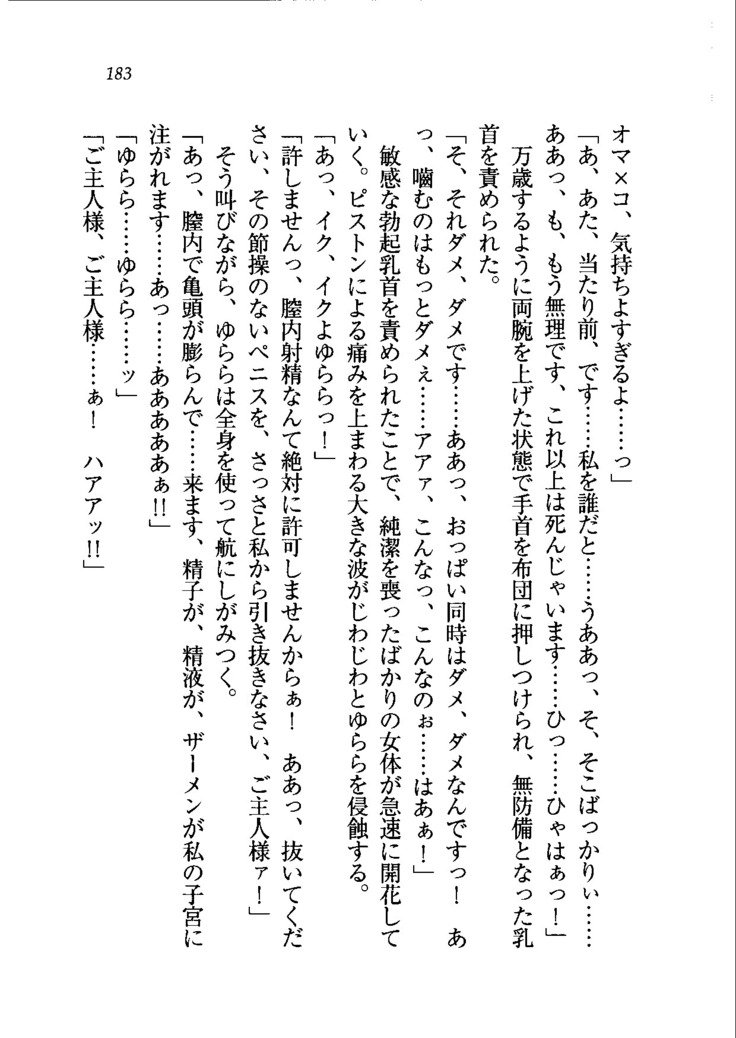 183
オマ×コ、気持ちよすぎるよ……っ」
「あ、あた、当たり前、です……私を誰だと……うああっ、そ、そこばっかりぃ……
ああっ、も、もう無理です、これ以上は死んじゃいます……ひっ……ひゃはぁっ！」
万歳するように両腕を上げた状態で手首を布団に押しつけられ、無防備となった乳
首を責められた。
「そ、それダメ、ダメです……ああっ、おっぱい同時はダメ、ダメなんですっ！　あ
っ、嚙むのはもっとダメぇ……アアァ、こんなっ、こんなのぉ……はあぁ！」
敏感な勃起乳首を責められたことで、純潔を喪ったばかりの女体が急速に開花して
いく。ピストンによる痛みを上まわる大きな波がじわじわとゆららを侵蝕する。
「あっ、イク、イクよゆららっ！」
「許しませんっ、膣内射精なんて絶対に許可しませんからぁ！　ああっ、抜いてくだ
さい、その節操のないペニスを、さっさと私から引き抜きなさい、ご主人様ァ！」
そう叫びながら、ゆららは全身を使って航にしがみつく。
「あっ、膣内で亀頭が膨らんで……来ます、精子が、精液が、ザーメンが私の子宮に
注がれます……あっ……ああああぁ!!」
「ゆらら……ゆらら……ッ」
「ご主人様、ご主人様……ぁ！　ハアアッ!!」